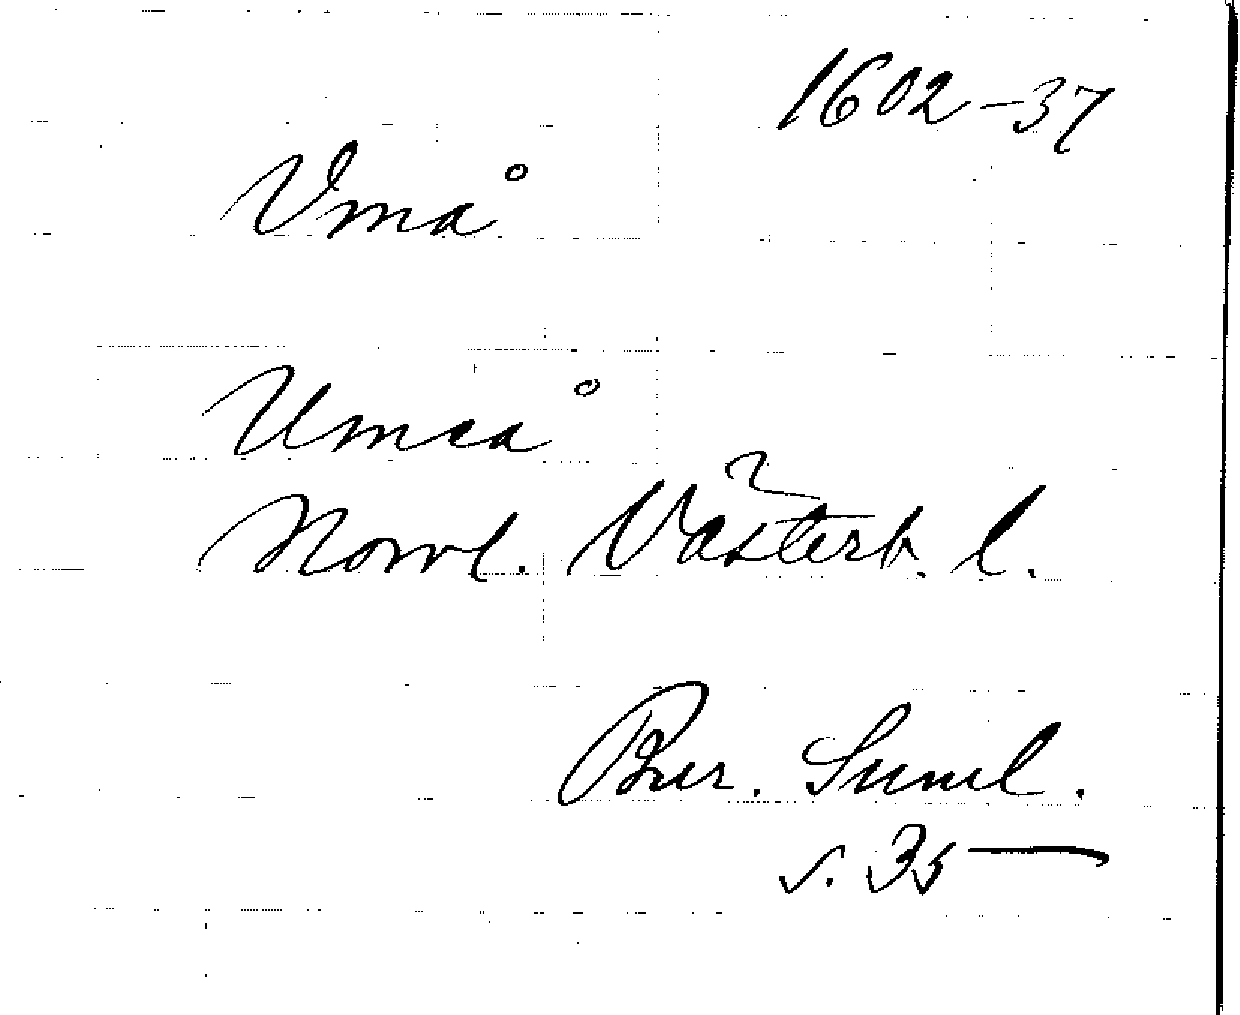 1602-37
Vmå
Umeå
Norrl. Västerb. l.
Bur. Sunil.
s. 35